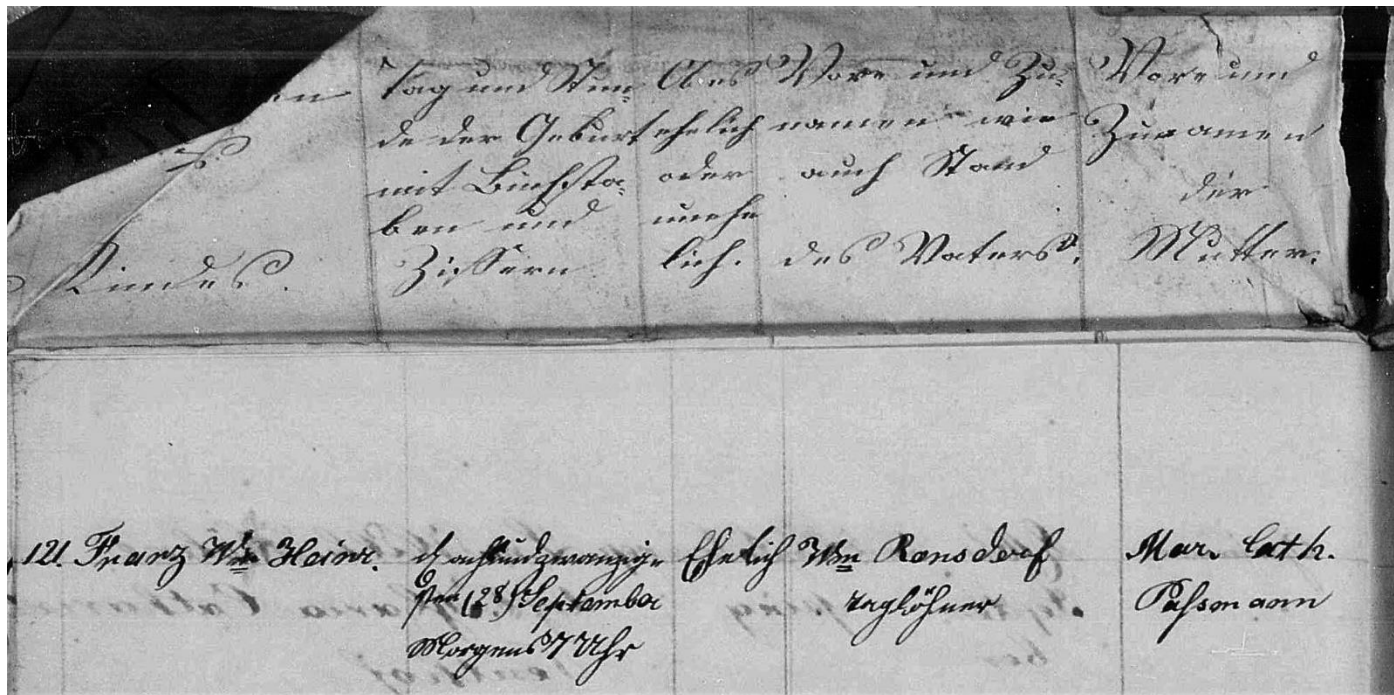 Kindes.
Tag und Stun-
de der Geburt
mit Buchsta-
ben und
Ziffern
Ob es
ehelich
oder
unehe
lich.
Vor- und Zu-
namen wie
auch Stand
des Vaters.
Vor- und
Zunamen
der
Mutter.
121. Franz Wm Heinr.
d achtundzwanzig-
sten (28) September
Morgens 7 Uhr
Ehelich
Wm Ronsdorf
Taglöhner
Mar. Cath.
Paßmann